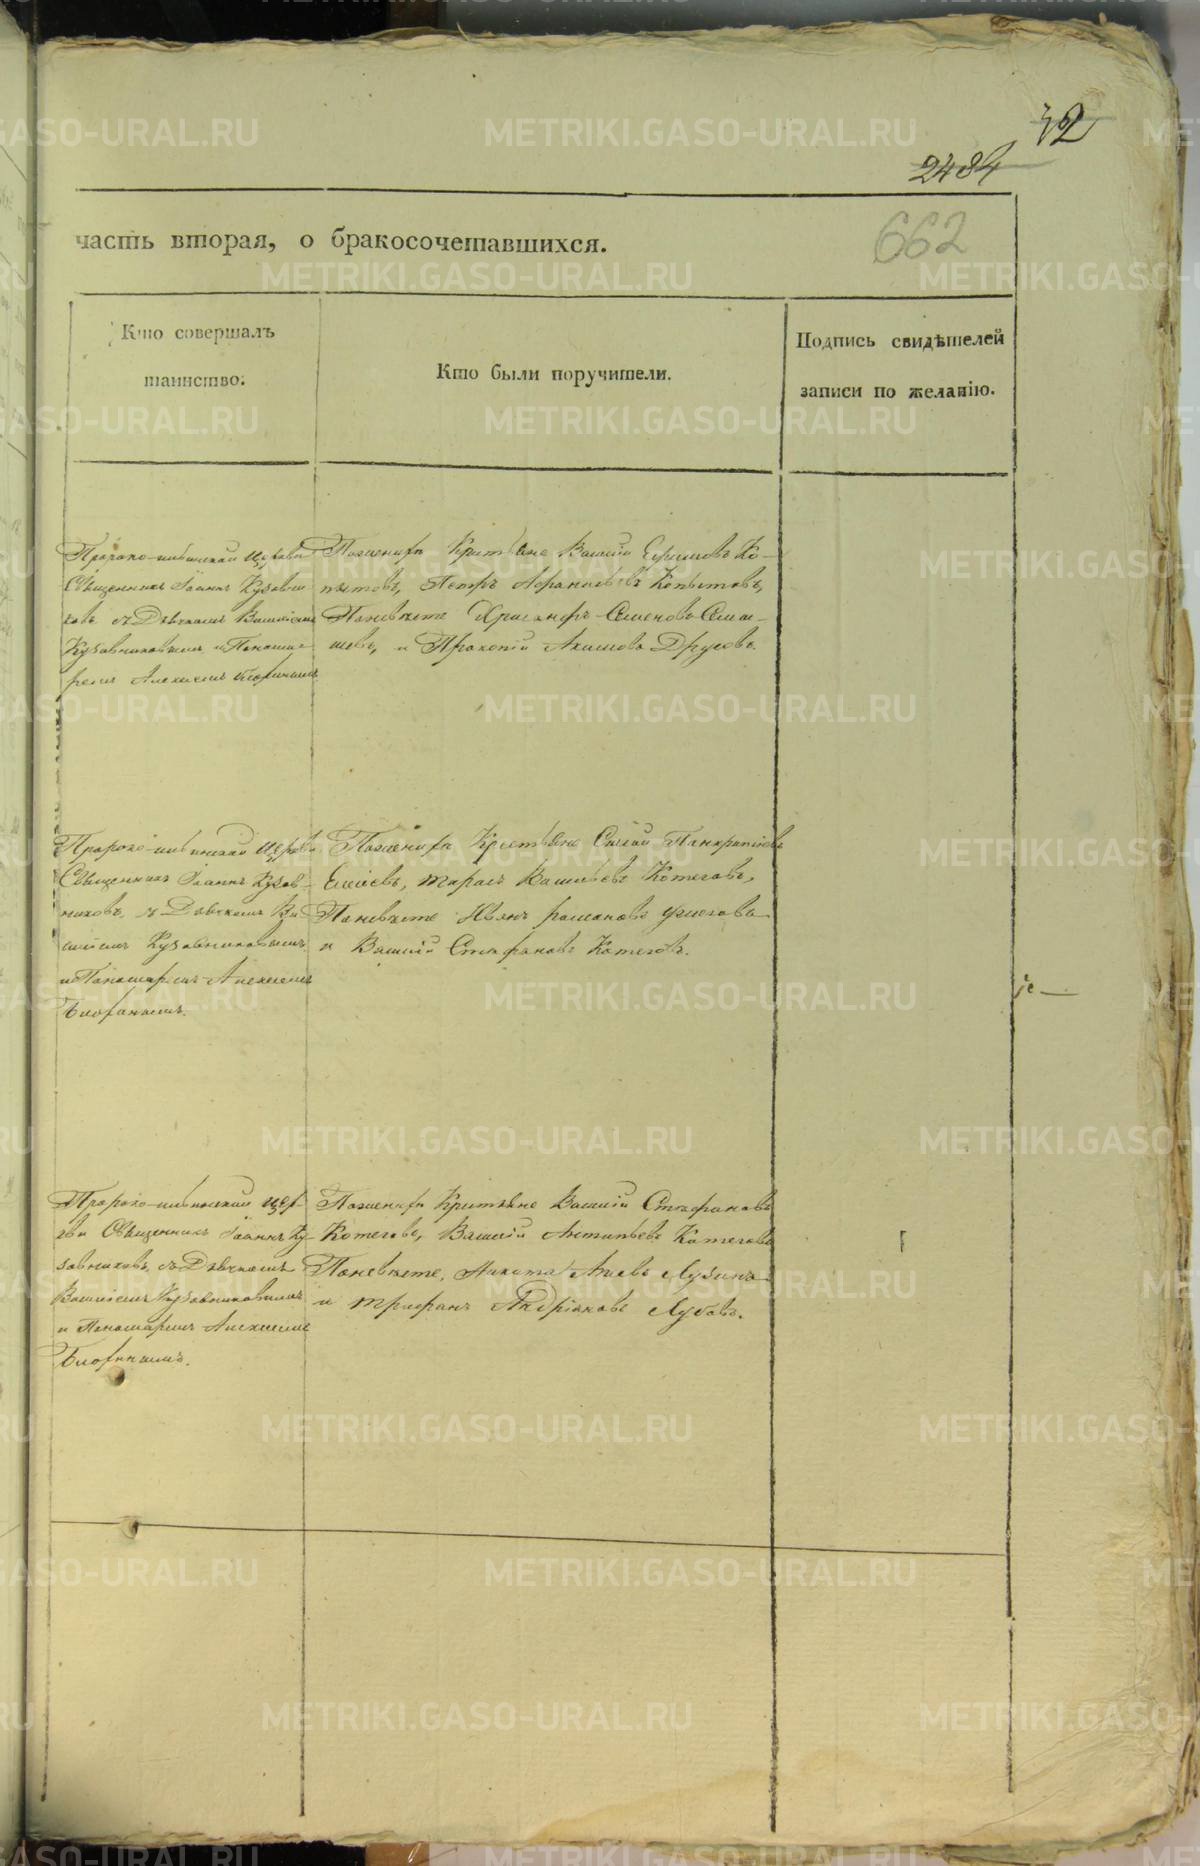 32
2484
662
часть вторая, о бракосочетавшихся.
Кто совершалъ
таинство.
Кто были поручители.
Подпись свидѣтелей
записи по желанію.
Пророко-ильинской церкви
Священникъ Іоаннъ Кузовни
ковъ съ Дьячкомъ Василіемъ
Кузовниковымъ и Понома
ремъ Алексеемъ
По женихѣ Крестьяне Василій Ефимовъ Ко-
пытовъ, Петръ Афанасьевъ Копытовъ,
По невѣсте Хрисанфъ Семеновъ
и Прокопій Акимовъ Друговъ.
Пророко-ильинской церкви
Священникъ Іоаннъ Кузов-
никовъ, съ Дьячкомъ Ва
силіемъ Кузовниковымъ
и Пономаремъ Алексеемъ
По женихѣ Крестьяне Панкратіевъ
Елисеевъ, Тарасъ Васильевъ Котеговъ,
По невѣсте Иванъ Романовъ
и Василій Стефановъ Котеговъ.
Пророко-ильинской цер-
кви Священникъ Іоаннъ Ку-
зовниковъ, съ Дьячкомъ
Василіемъ Кузовниковымъ
и Пономаремъ Алексеемъ
По женихѣ Крестьяне Василій Стефановъ
Котеговъ, Василій Антипьевъ Котеговъ
По невѣсте, Никита Лузинъ
и Трифонъ Андріяновъ
METRIKI.GASO-URAL.RU